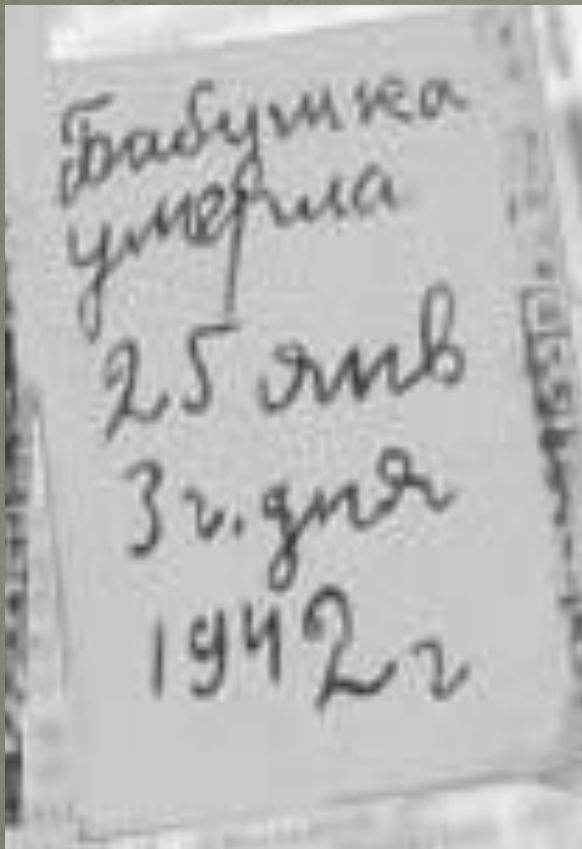 Бабушка
умерла
25 янв
3 г. дня
1942 г